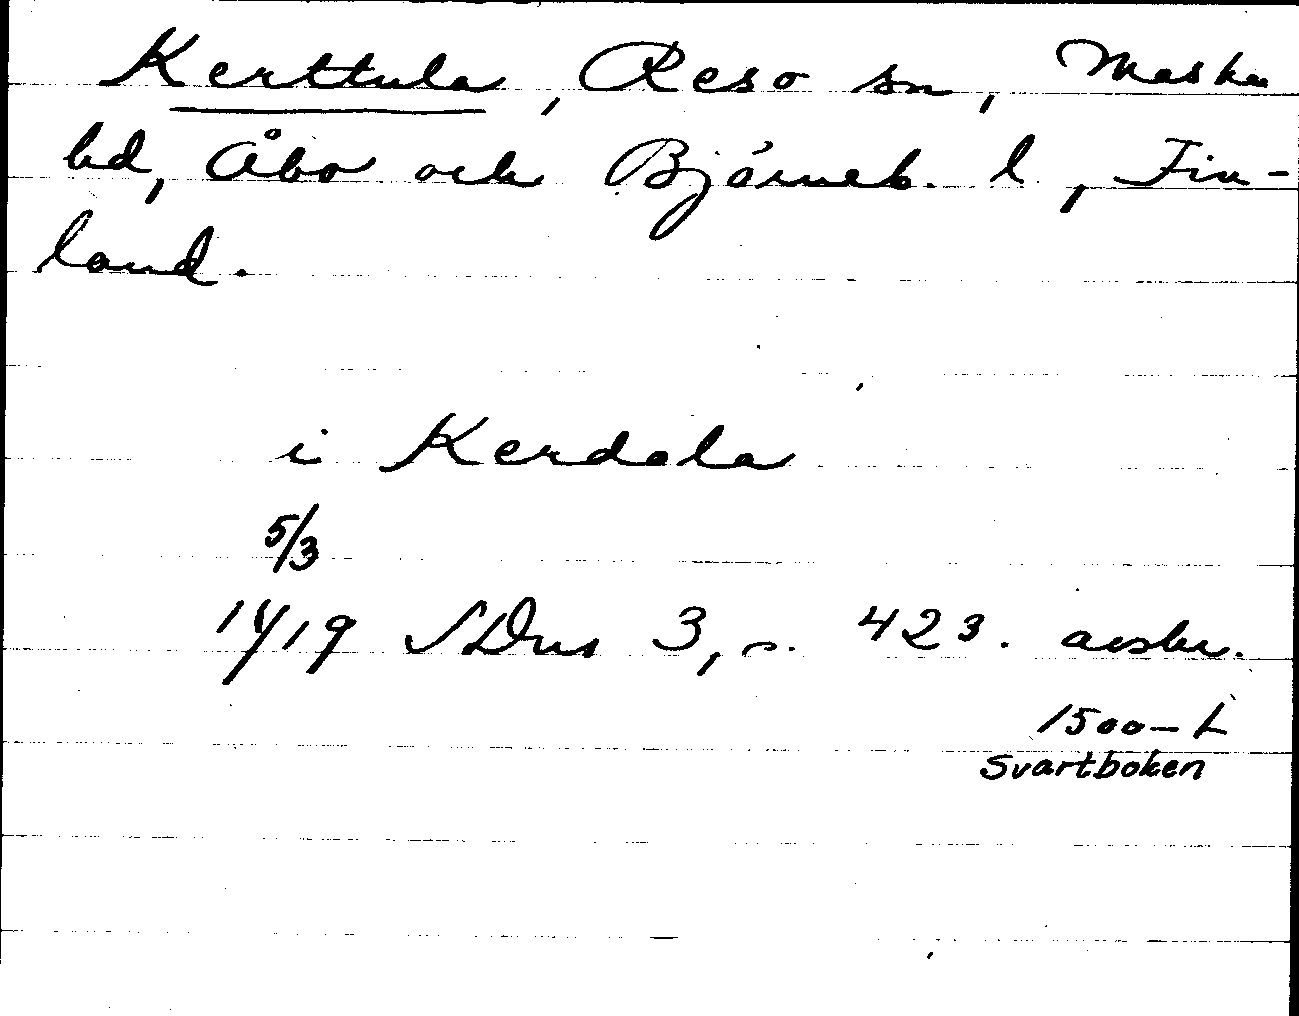 Kerttula, Reso sn, Masku
hd, Åbo och Björneb. l, Fin-
land.
i Kerdala
5/3
1419 SDns 3, s. 423. avskr.
1500-t
Svartboken